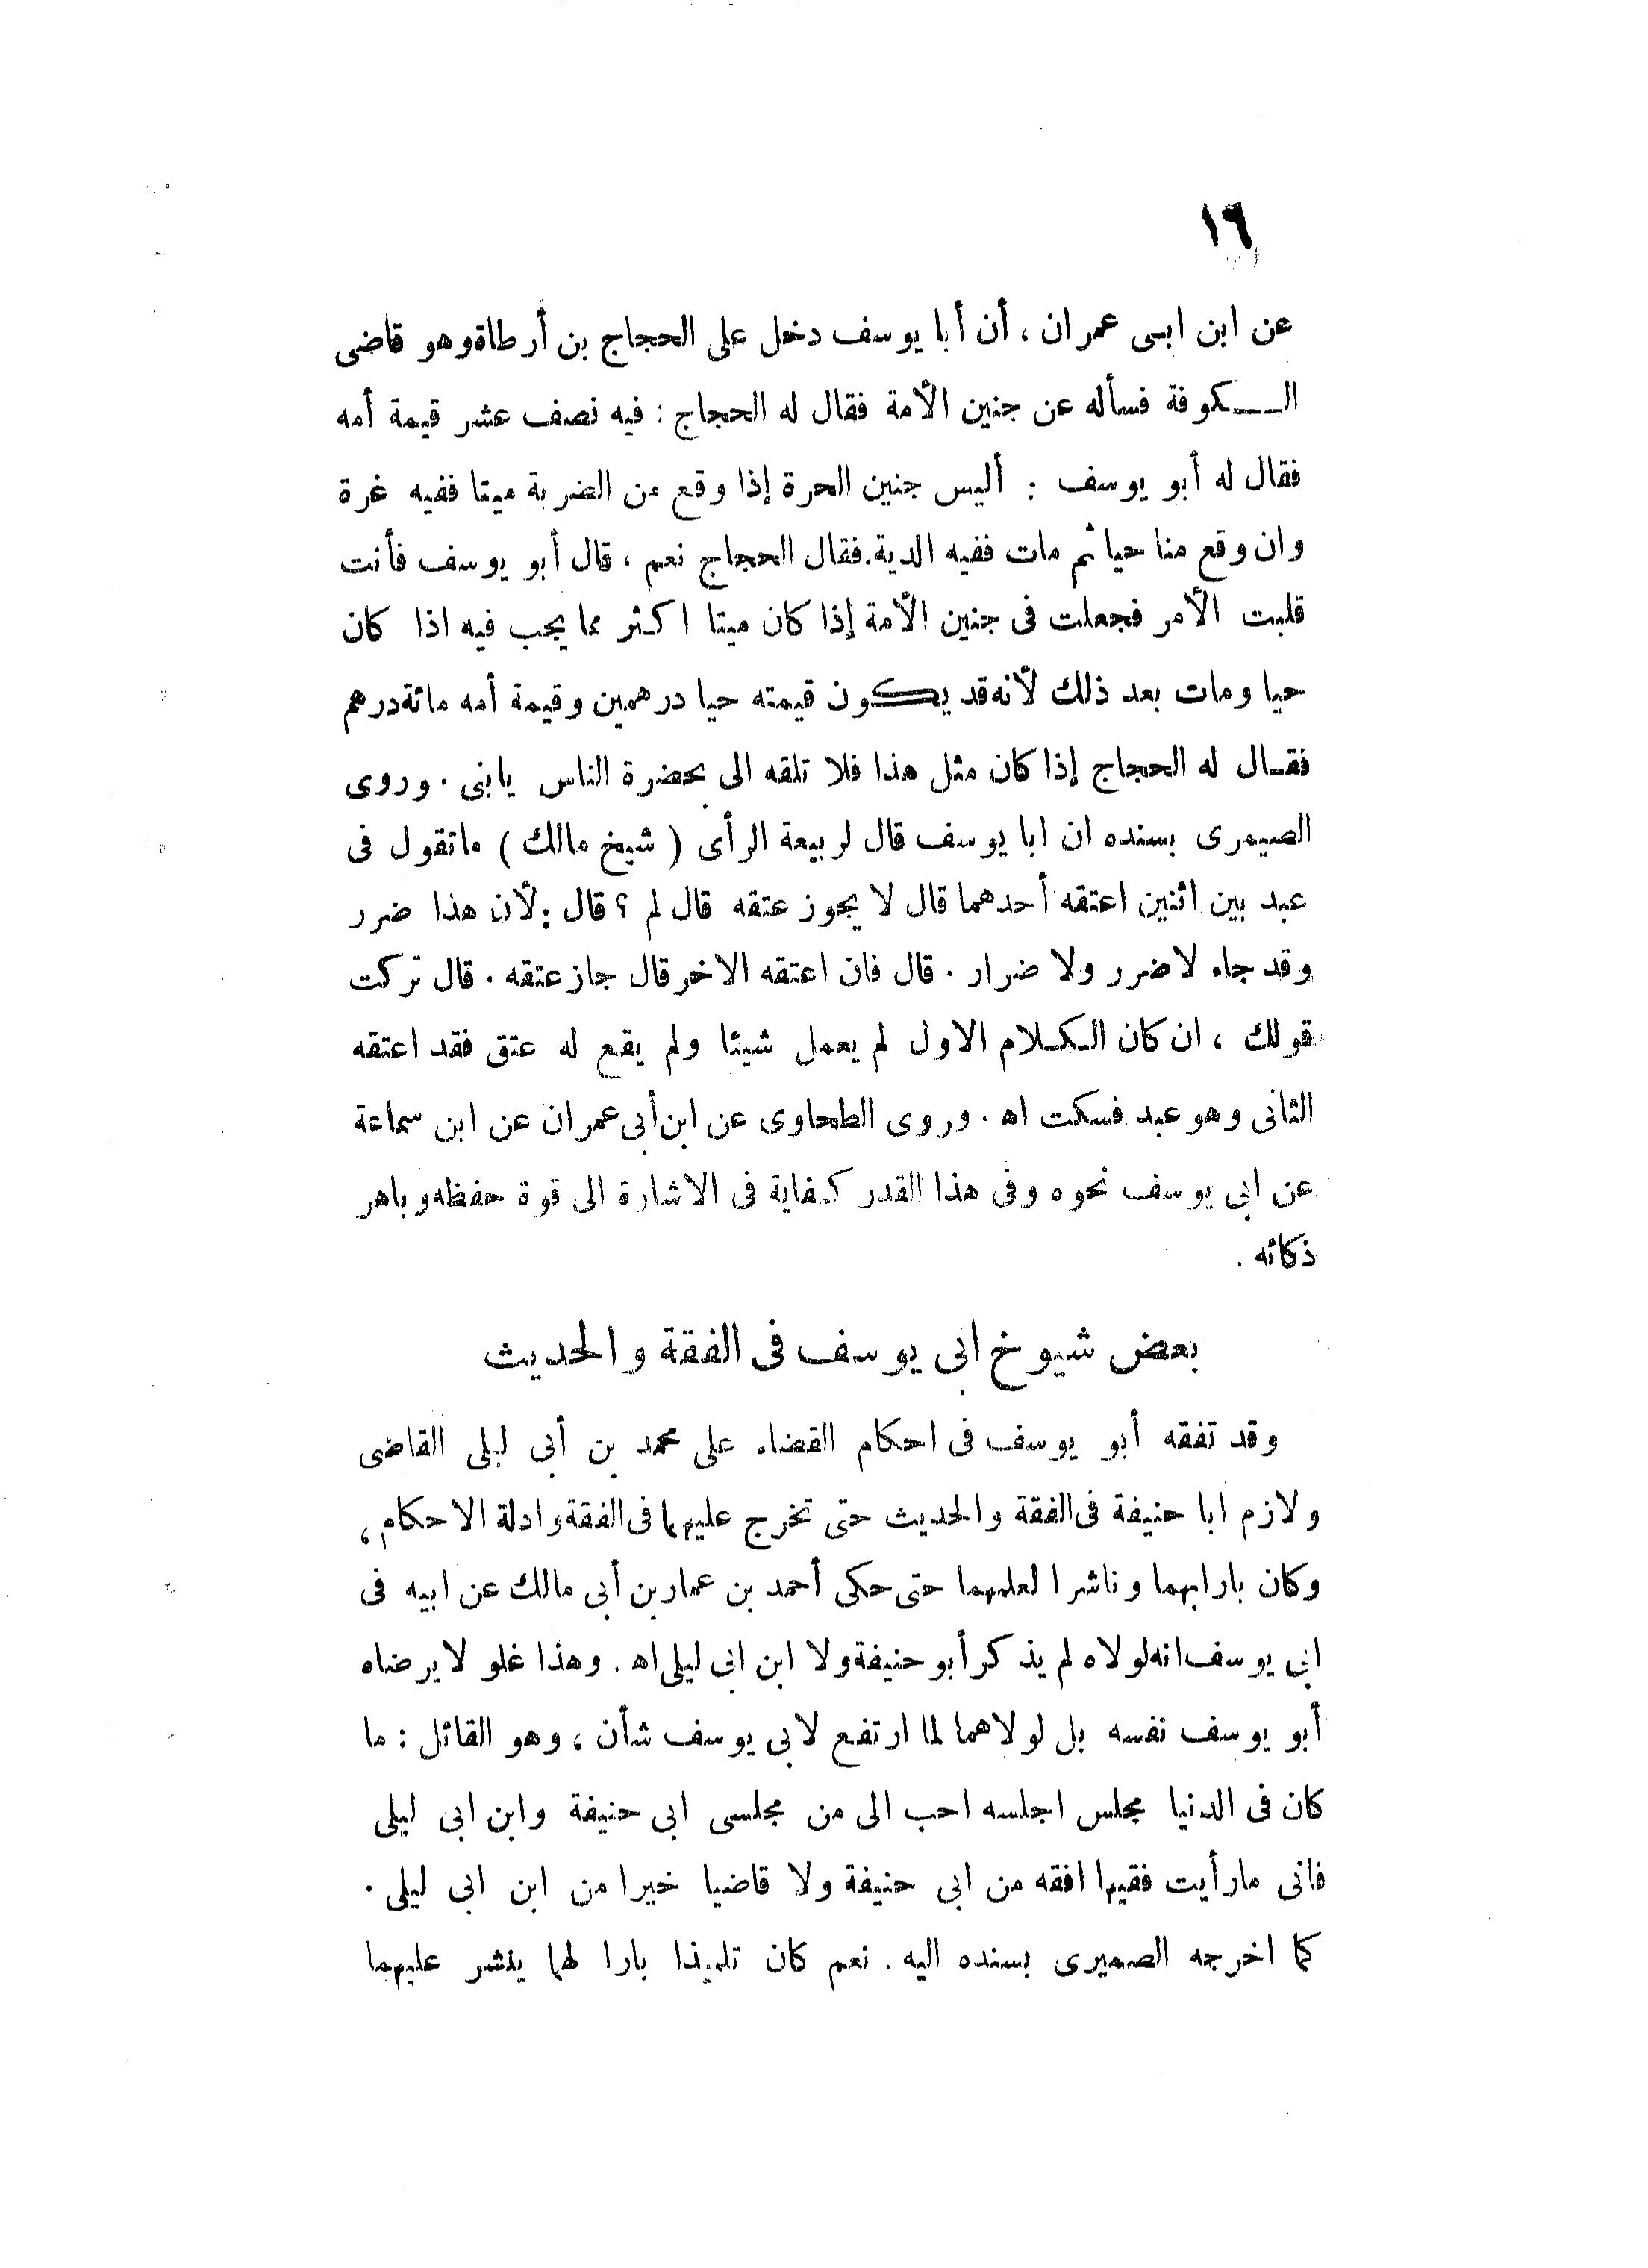 ١٦
عن ابن ابى عمران ، أن أبا يوسف دخل على الحجاج بن أرطاة وهو قاضى
الـكوفة فسأله عن جنين الأمة فقال له الحجاج : فيه نصف عشر قيمة أمه
فقال له أبو يوسف : أليس جنين الحرة إذا وقع من الضربة ميتا ففيه غرة
وان وقع منا حيا ثم مات ففيه الدية. فقال الحجاج نعم ، قال أبو يوسف فأنت
قلبت الأمر فجعلت فى جنين الأمة إذا كان ميتا اكثر مما يجب فيه اذا كان
حيا ومات بعد ذلك لأنه قد يكون قيمته حيا درهمين وقيمة أمه مائة درهم
فقال له الحجاج إذا كان مثل هذا فلا تلقه الى بحضرة الناس يابنى . وروى
الصيمرى بسنده ان ابا يوسف قال لربيعة الرأى ( شيخ مالك ) ماتقول فى
عبد بين اثنين اعتقه أحدهما قال لا يجوز عتقه قال لم ؟ قال : لأن هذا ضرر
وقد جاء لا ضرر ولا ضرار . قال فان اعتقه الاخر قال جاز عتقه . قال تركت
قولك ، ان كان الـكـلام الاول لم يعمل شيئا ولم يقع له عتق فقد اعتقه
الثانى وهو عبد فسكت اه . وروى الطحاوى عن ابن أبى عمران عن ابن سماعة
عن ابى يوسف نحوه وفى هذا القدر كفاية فى الاشارة الى قوة حفظه وباهر
ذكائه .
بعض شيوخ ابى يوسف فى الفقة والحديث
وقد تفقه أبو يوسف فى احكام القضاء على محمد بن أبى ليلى القاضى
ولازم ابا حنيفة فى الفقة والحديث حتى تخرج عليهما فى الفقة وادلة الاحكام ،
وكان بارابهما وناشرا لعلمهما حتى حكى أحمد بن عمار بن أبى مالك عن ابيه فى
ابى يوسف انه لولاه لم يذكر أبو حنيفة ولا ابن ابى ليلى اه . وهذا غلو لا يرضاه
أبو يوسف نفسه بل لولاهما لما ارتفع لابى يوسف شأن ، وهو القائل : ما
كان فى الدنيا مجلس اجلسه احب الى من مجلسى ابى حنيفة وابن ابى ليلى
فانى مارأيت فقيها افقه من ابى حنيفة ولا قاضيا خيرا من ابن ابى ليلى .
كما اخرجه الصميرى بسنده اليه . نعم كان تلميذا بارا لهما ينشر عليهما